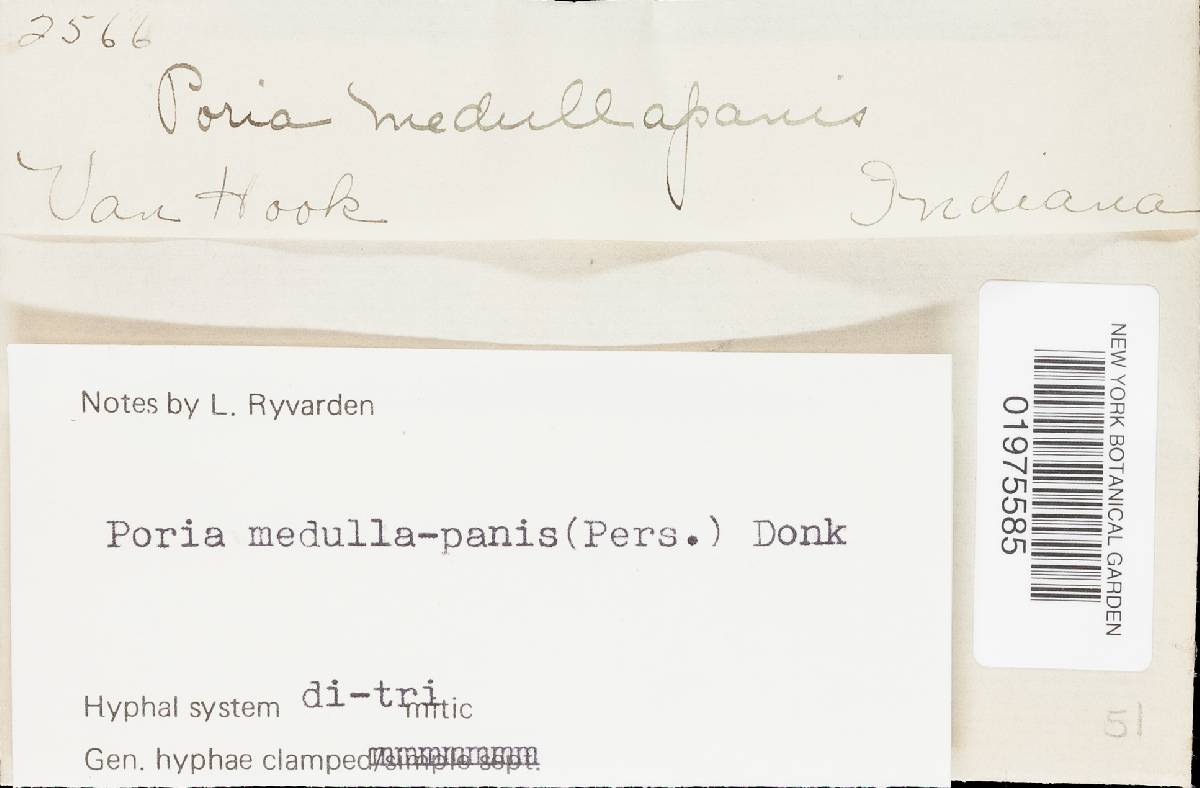 2566
Poria medullapanis
Van Hook Indiana
Notes by L. Ryvarden
Poria medulla-panis(Pers.) Donk
Hyphal system di-trimitic
Gen. hyphae clamped/simple sept.
NEW YORK BOTANICAL GARDEN
01975585
51